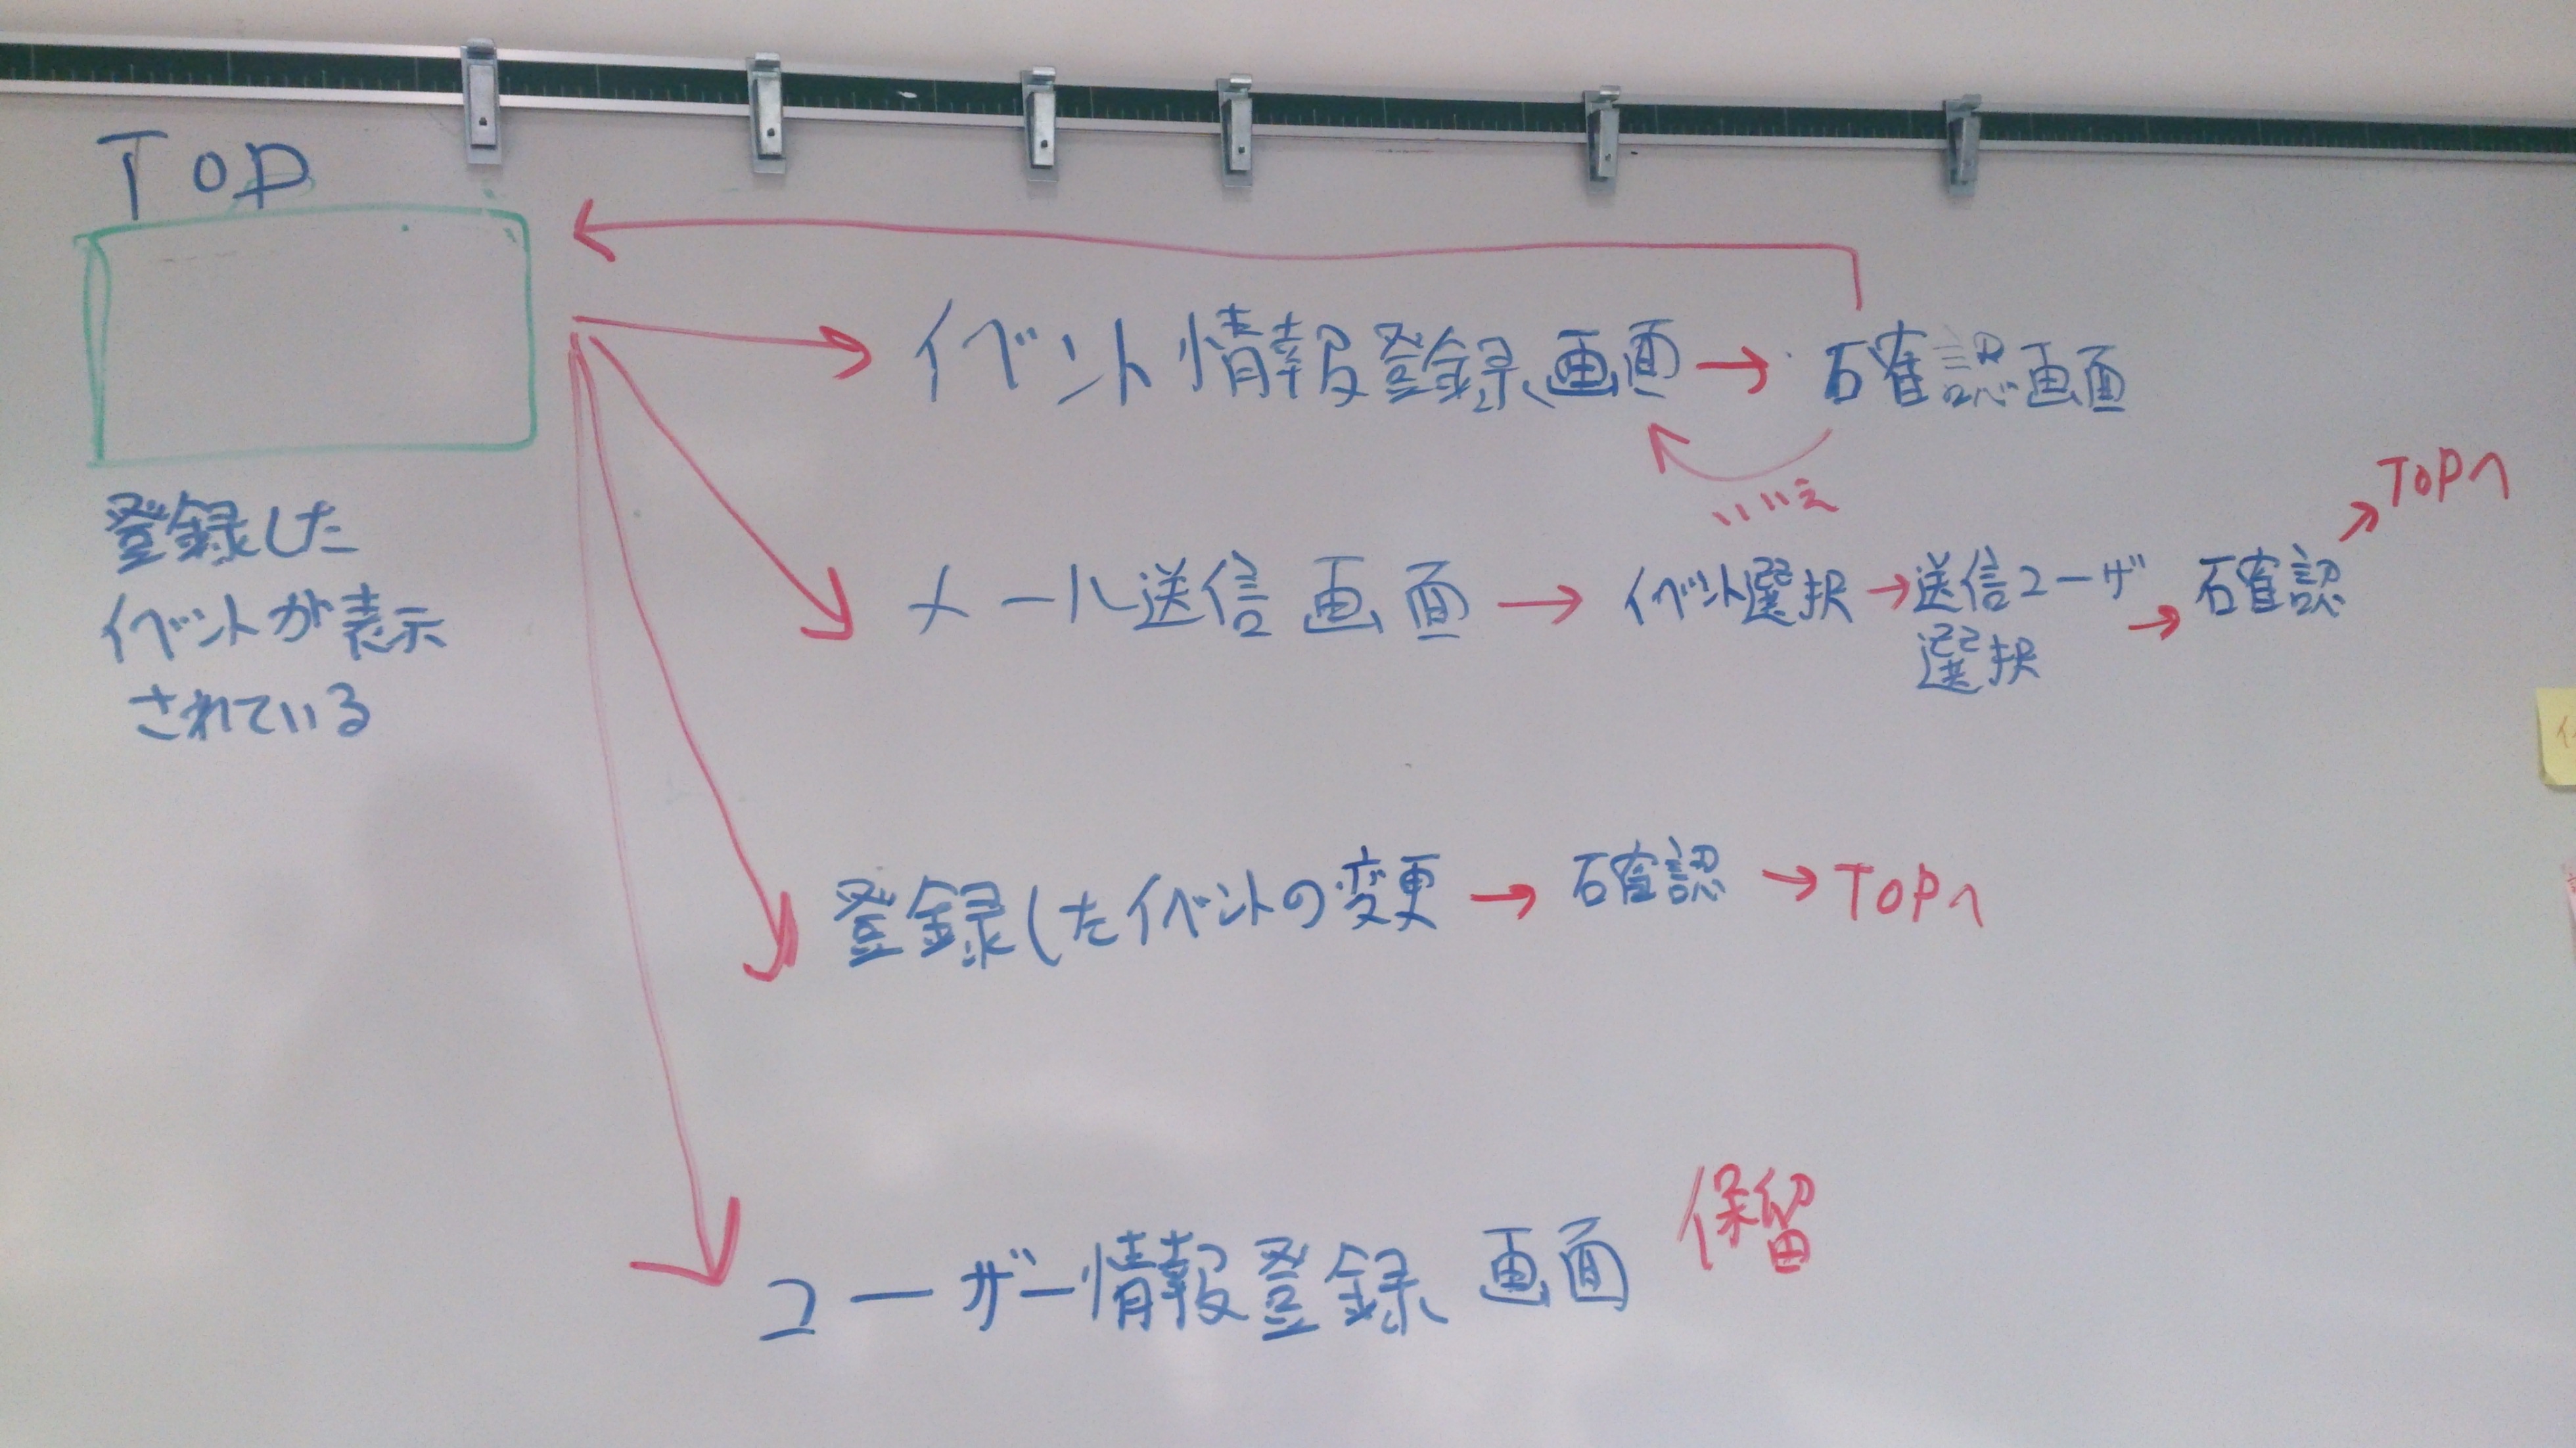 TOP
登録した
イベントが表示
されている
イベント情報登録画面 → 確認画面
いいえ
メール送信画面 → イベント選択 → 送信ユーザ
選択
→ 確認
→ TOPへ
登録したイベントの変更 → 確認 → TOPへ
ユーザー情報登録画面 保留